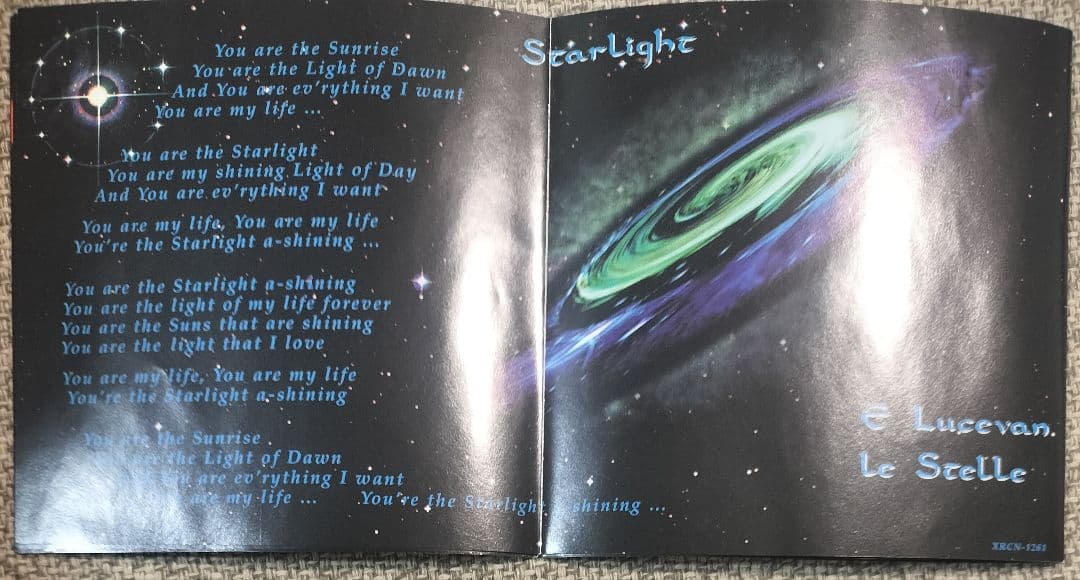 You are the Sunrise
You are the Light of Dawn
And You are ev'rything I want
You are my life ...
You are the Starlight
You are my shining Light of Day
And You are ev'rything I want
You are my life, You are my life
You're the Starlight a-shining ...
You are the Starlight a-shining
You are the light of my life forever
You are the Suns that are shining
You are the light that I love
You are my life, You are my life
You're the Starlight a-shining
You are the Sunrise
are the Light of Dawn
You are ev'rything I want
are my life ... You're the Starlight shining ...
StarLight
E Lucevan
Le Stelle
XRCN-1261